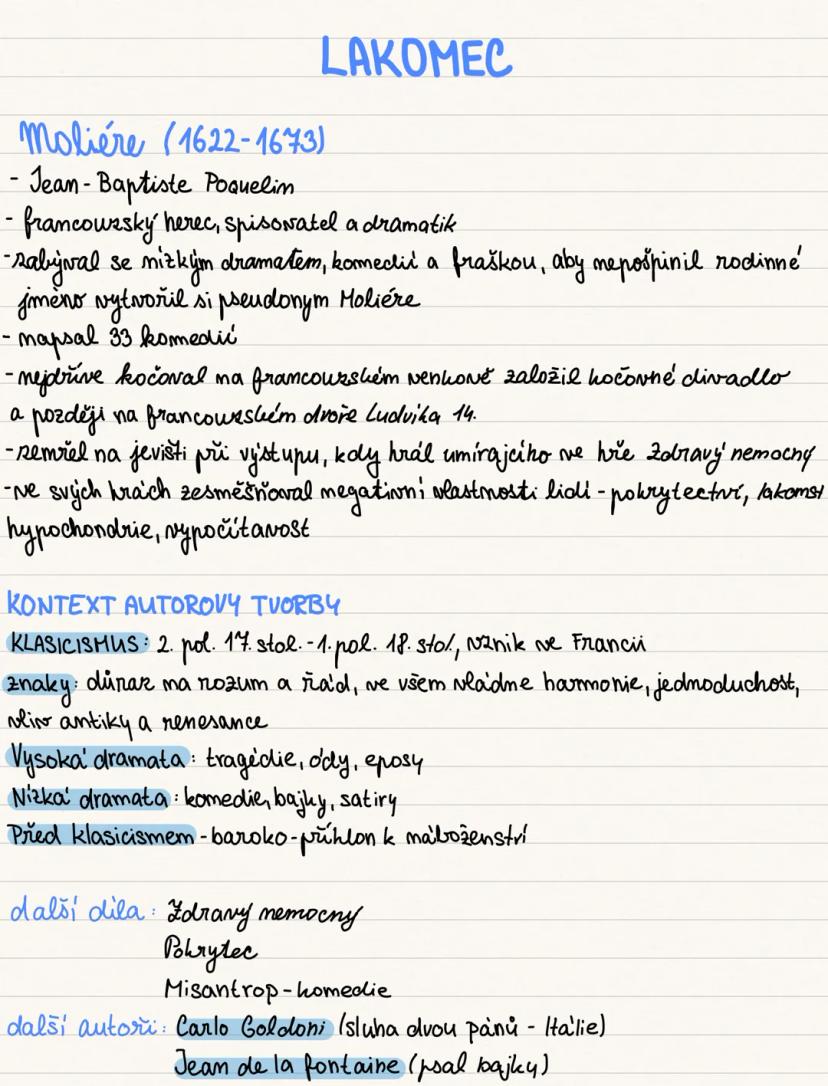 LAKOMEC
Moliére (1622-1673)
- Jean-Baptiste Poquelin
- francouzský herec, spisovatel a dramatik
-zabýval se nízkým dramatem, komedií a fraškou, aby nepošpinil rodinné
jméno vytvořil si pseudonym Moliére
- napsal 33 komedií
-nejdříve kočoval na francouzském venkově založil kočovné divadlo
a později na francouzském dvoře Ludvíka 14.
-zemřel na jevišti při výstupu, kdy hrál umírajícího ve hře Zdravý nemocný
-ve svých hrách zesměšňoval negativní vlastnosti lidí - pokrytectví, lakomst
hypochondrie, vypočítavost
KONTEXT AUTOROVY TVORBY
KLASICISMUS: 2. pol. 17. stol. - 1. pol. 18. stol, vznik ve Francii
znaky: důraz na rozum a řád, ve všem vládne harmonie, jednoduchost,
vliv antiky a renesance
Vysoká dramata: tragédie, ódy, eposy
Nízká dramata: komedie, bajky, satiry
Před klasicismem - baroko - příklon k náboženství
další díla: Zdravý nemocný
Pokrytec
Misantrop - komedie
další autoři: Carlo Goldoni (sluha dvou pánů - Itálie)
Jean de la fontaine (psal bajky)